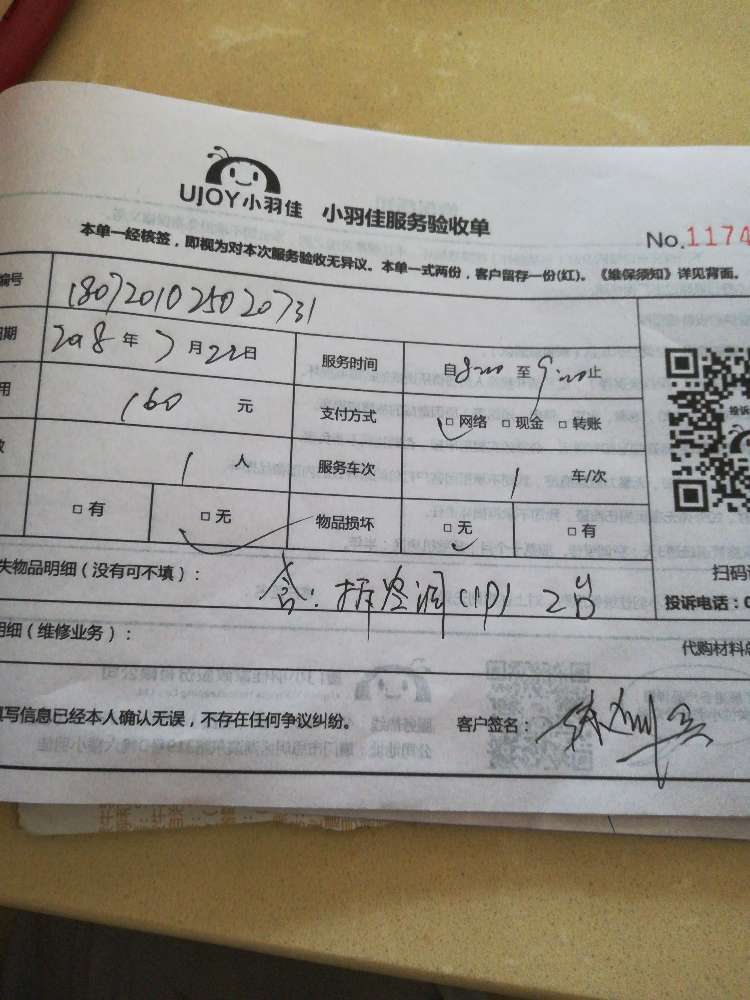 UJOY小羽佳 小羽佳服务验收单
No.1174
本单一经核签，即视为对本次服务验收无异议。本单一式两份，客户留存一份(红)。《维保须知》详见背面。
编号 1807201025020731
期 2018年7月22日 服务时间 自8:00至9:00止
用 160元 支付方式 □网络 □现金 □转账
1人 服务车次 1车/次
□有 □无 物品损坏 □无 □有
失物品明细（没有可不填）：
含：拆空调(1P) 2台
扫码
投诉电话：0
明细（维修业务）：
代购材料总
填写信息已经本人确认无误，不存在任何争议纠纷。 客户签名：